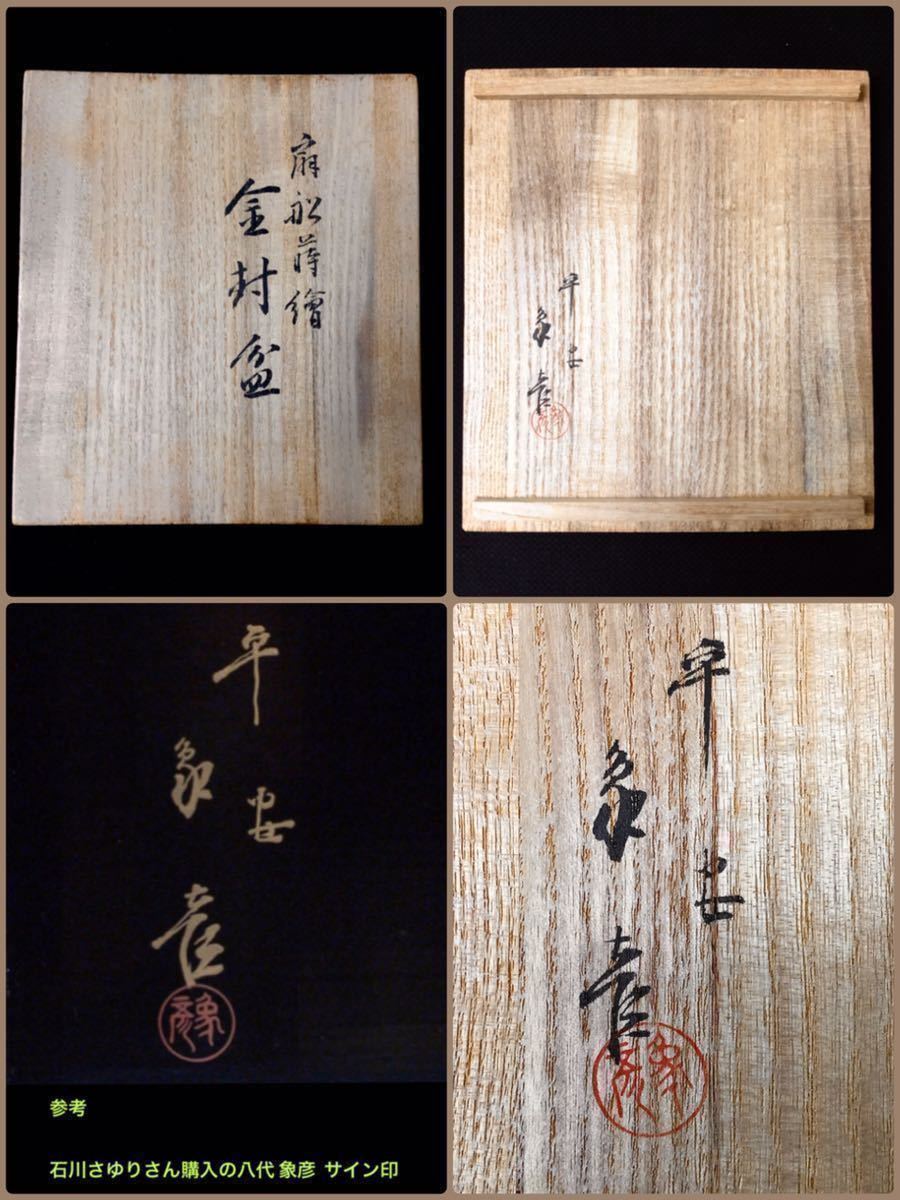 蒔繪
金封盆
平安
象彦
象彦
平安
象彦
象彦
平安
象彦
象彦
参考
石川さゆりさん購入の八代 象彦 サイン印